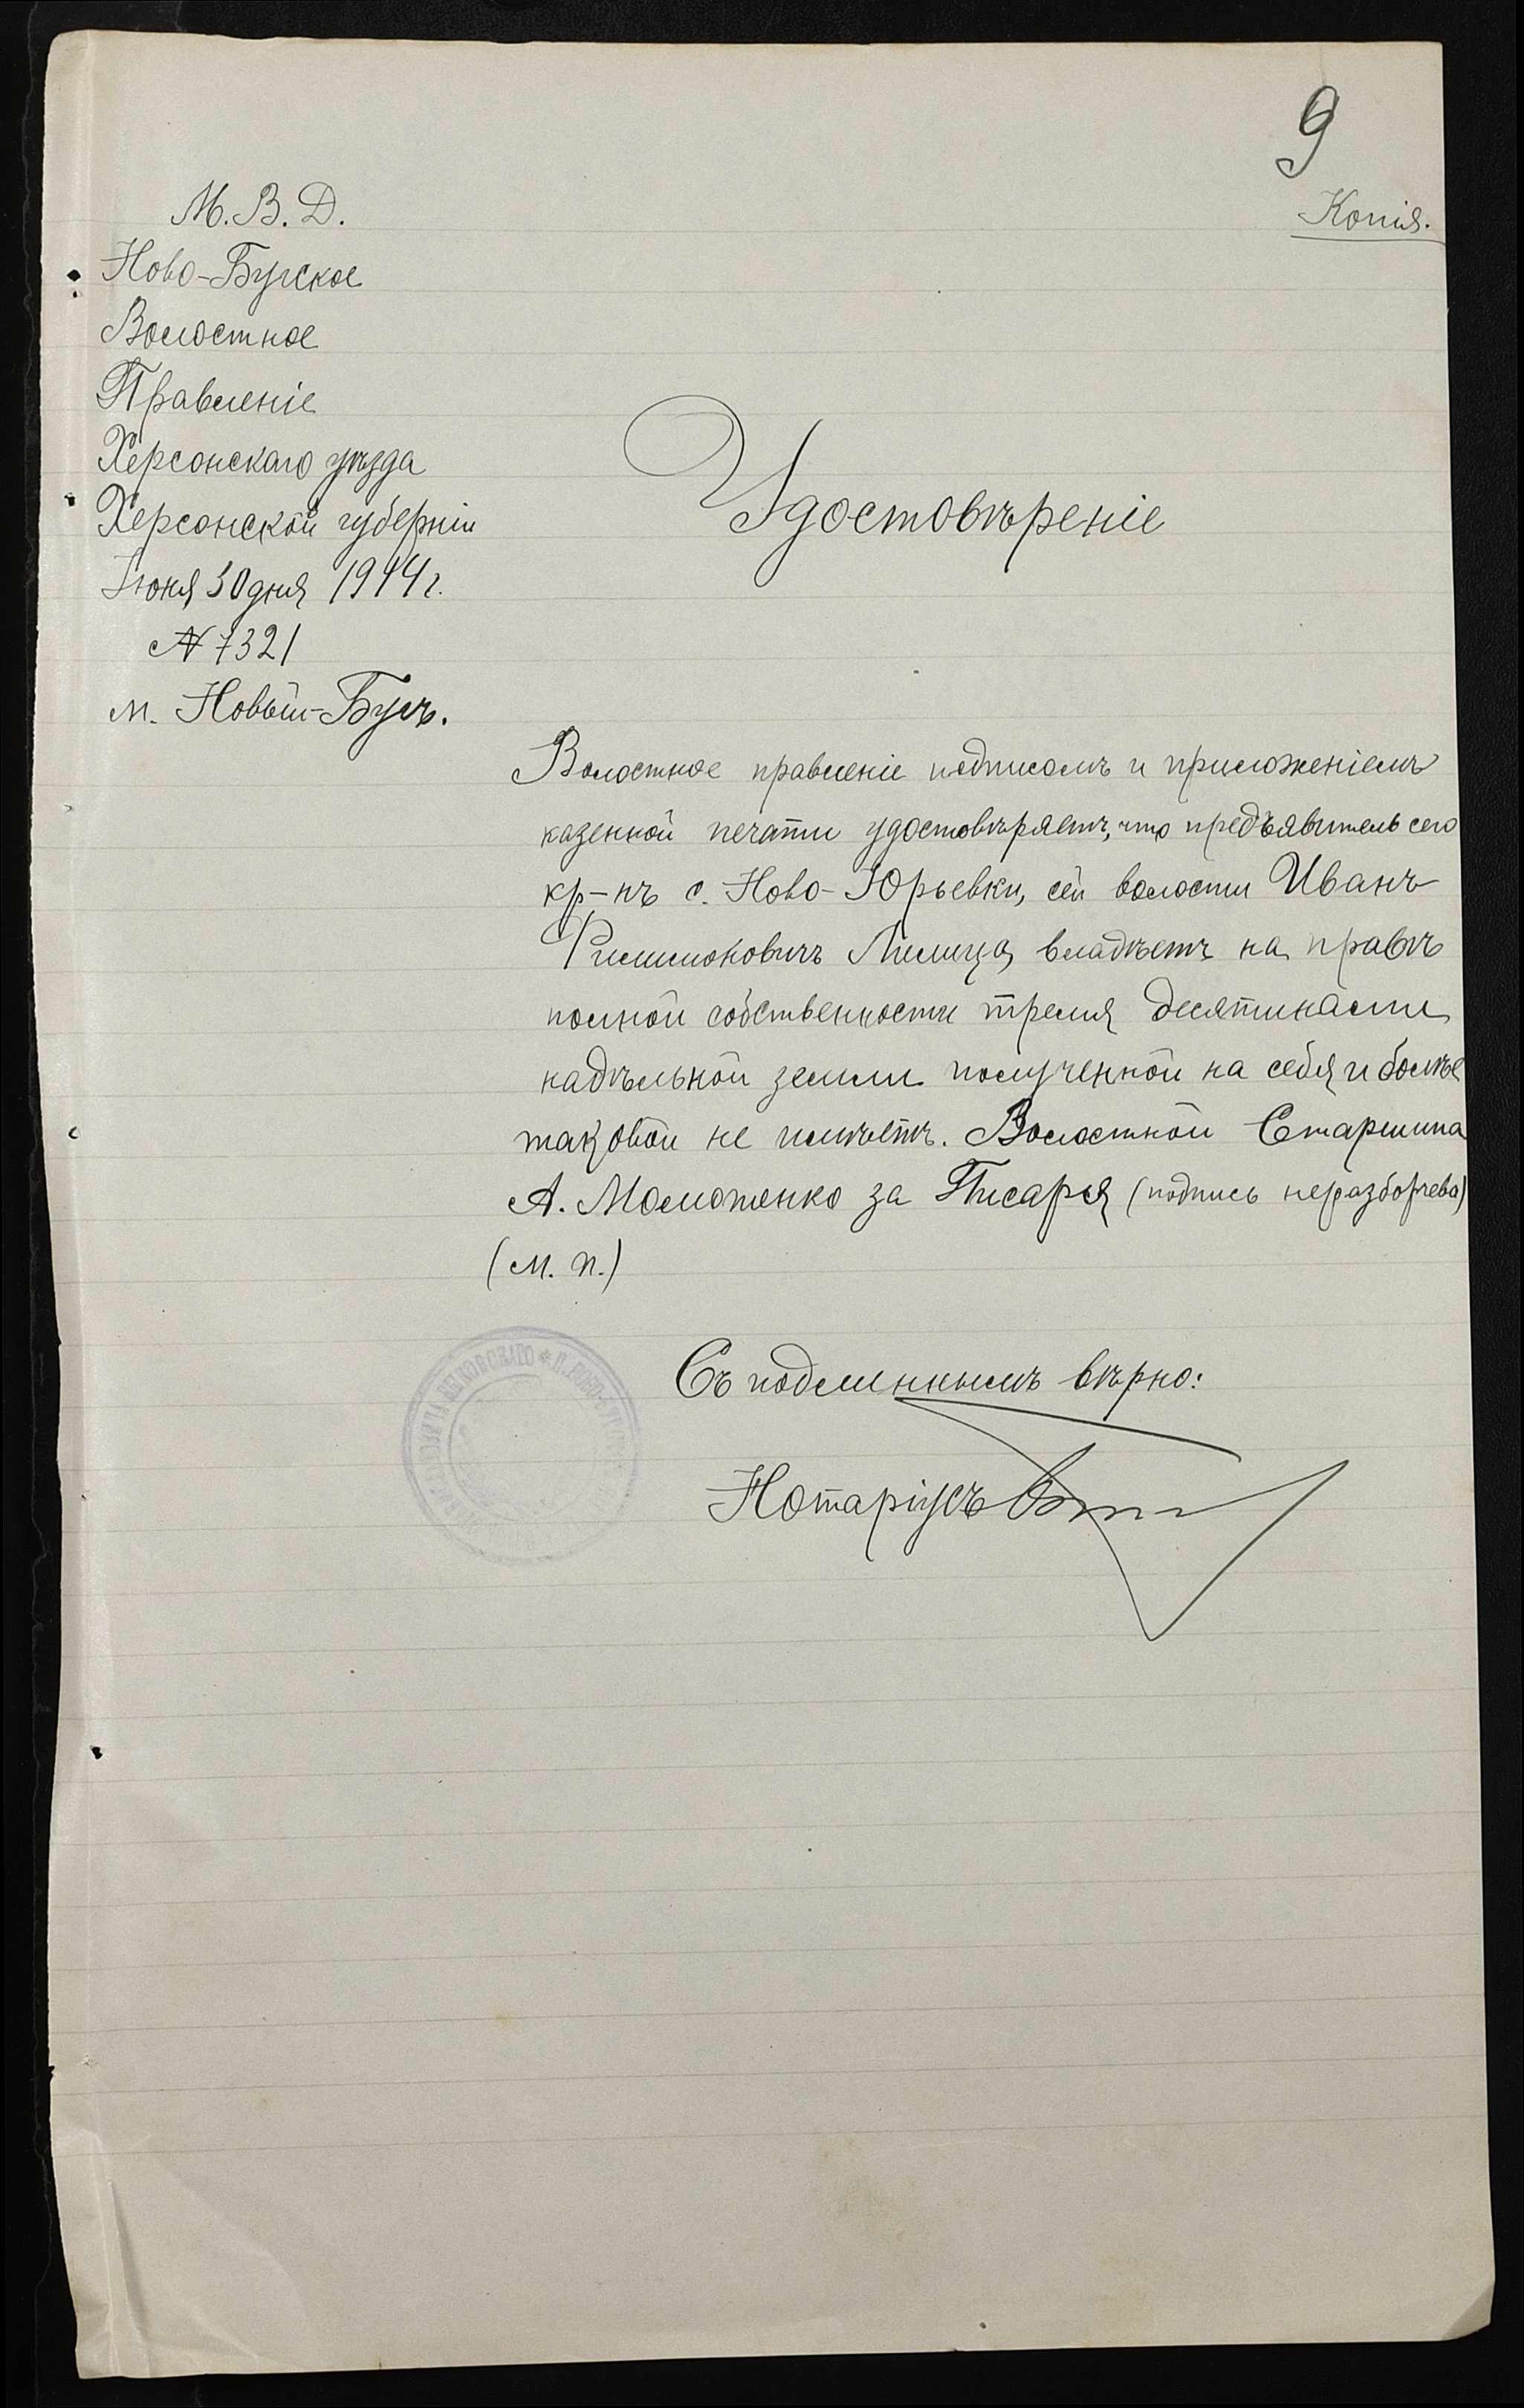 9
Копія.
М. В. Д.
Ново-Бугское
Волостное
Правленіе
Херсонскаго уѣзда
Херсонской губерніи
Іюня 30 дня 1914 г.
№ 7321
м. Новый-Бугъ.
Удостовѣреніе
Волостное правленіе подписомъ и приложеніемъ
казенной печати удостовѣряетъ, что предъявитель сего
кр-нъ с. Ново-Юрьевки, сей волости Иванъ
владѣетъ на правѣ
полной собственности тремя десятинами
надѣльной земли полученной на себя и болѣе
таковой не имѣетъ. Волостной Старшина
А. за Писаря (подпись неразборчева)
(м. п.)
Съ подлиннымъ вѣрно:
Нотаріусъ